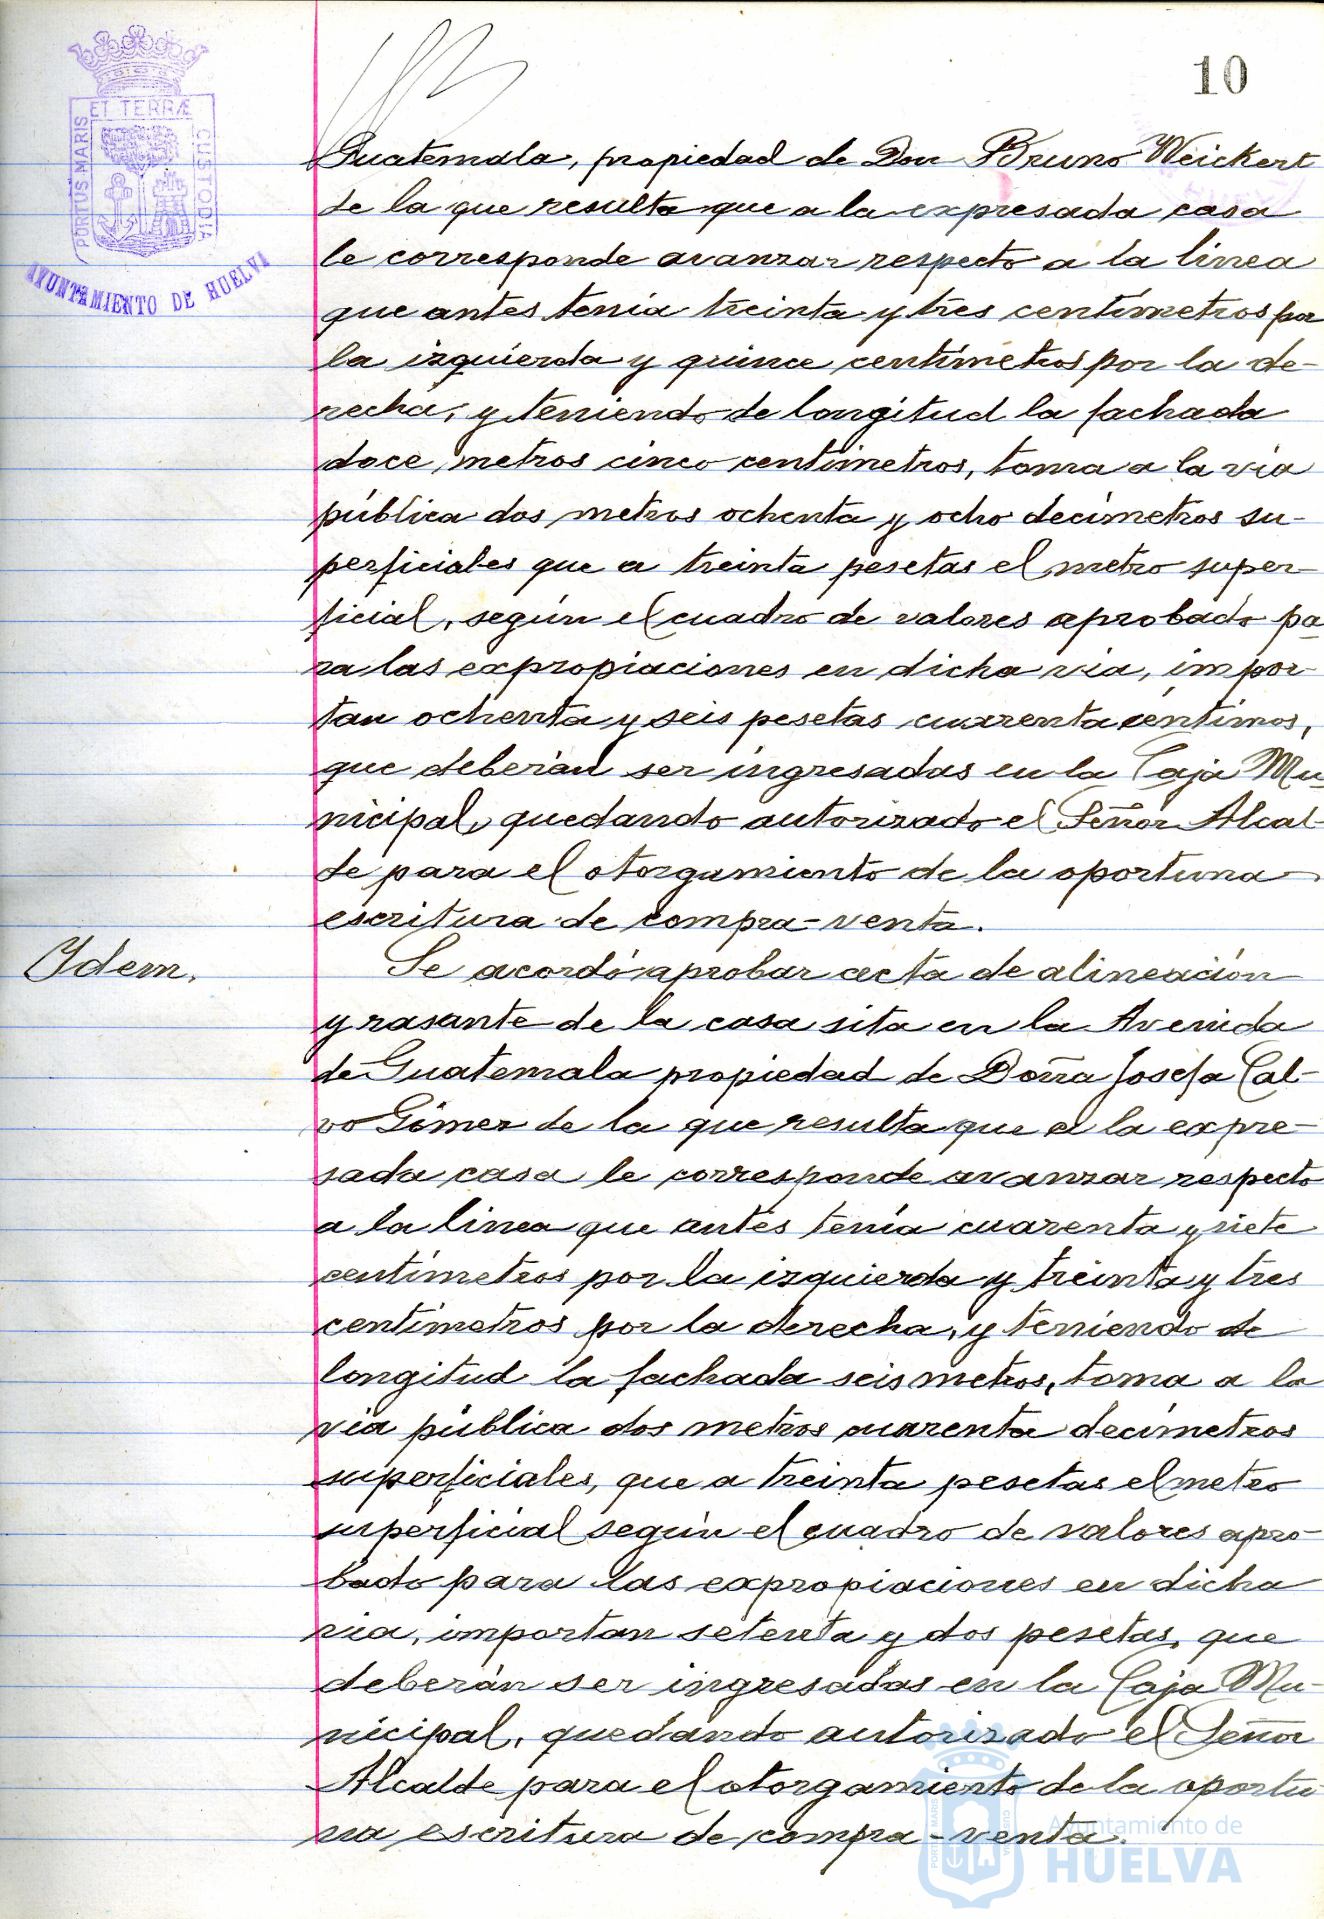 10
ET TERRÆ
PORTUS MARIS
CUSTODIA
AYUNTAMIENTO DE HUELVA
Guatemala, propiedad de Don Bruno Weickert
de la que resulta que a la expresada casa
le corresponde avanzar respecto a la línea
que antes tenía treinta y tres centímetros por
la izquierda y quince centímetros por la de-
recha, y teniendo de longitud la fachada
doce metros cinco centímetros, toma a la vía
pública dos metros ochenta y ocho decímetros su-
perficiales que a treinta pesetas el metro super-
ficial, según el cuadro de valores aprobado pa-
ra las expropiaciones en dicha vía, impor-
tan ochenta y seis pesetas cuarenta céntimos,
que deberán ser ingresadas en la Caja Mu-
nicipal, quedando autorizado el Señor Alcal-
de para el otorgamiento de la oportuna
escritura de compra-venta.
Ydem.
Se acordó aprobar acta de alineación
y rasante de la casa sita en la Avenida
de Guatemala propiedad de Doña Josefa Cal-
vo Gómez de la que resulta que a la expre-
sada casa le corresponde avanzar respecto
a la línea que antes tenía cuarenta y siete
centímetros por la izquierda y treinta y tres
centímetros por la derecha, y teniendo de
longitud la fachada seis metros, toma a la
vía pública dos metros cuarenta decímetros
superficiales, que a treinta pesetas el metro
superficial según el cuadro de valores apro-
bado para las expropiaciones en dicha
vía, importan setenta y dos pesetas, que
deberán ser ingresadas en la Caja Mu-
nicipal, quedando autorizado el Señor
Alcalde para el otorgamiento de la oportu-
na escritura de compra-venta.
Ayuntamiento de
HUELVA